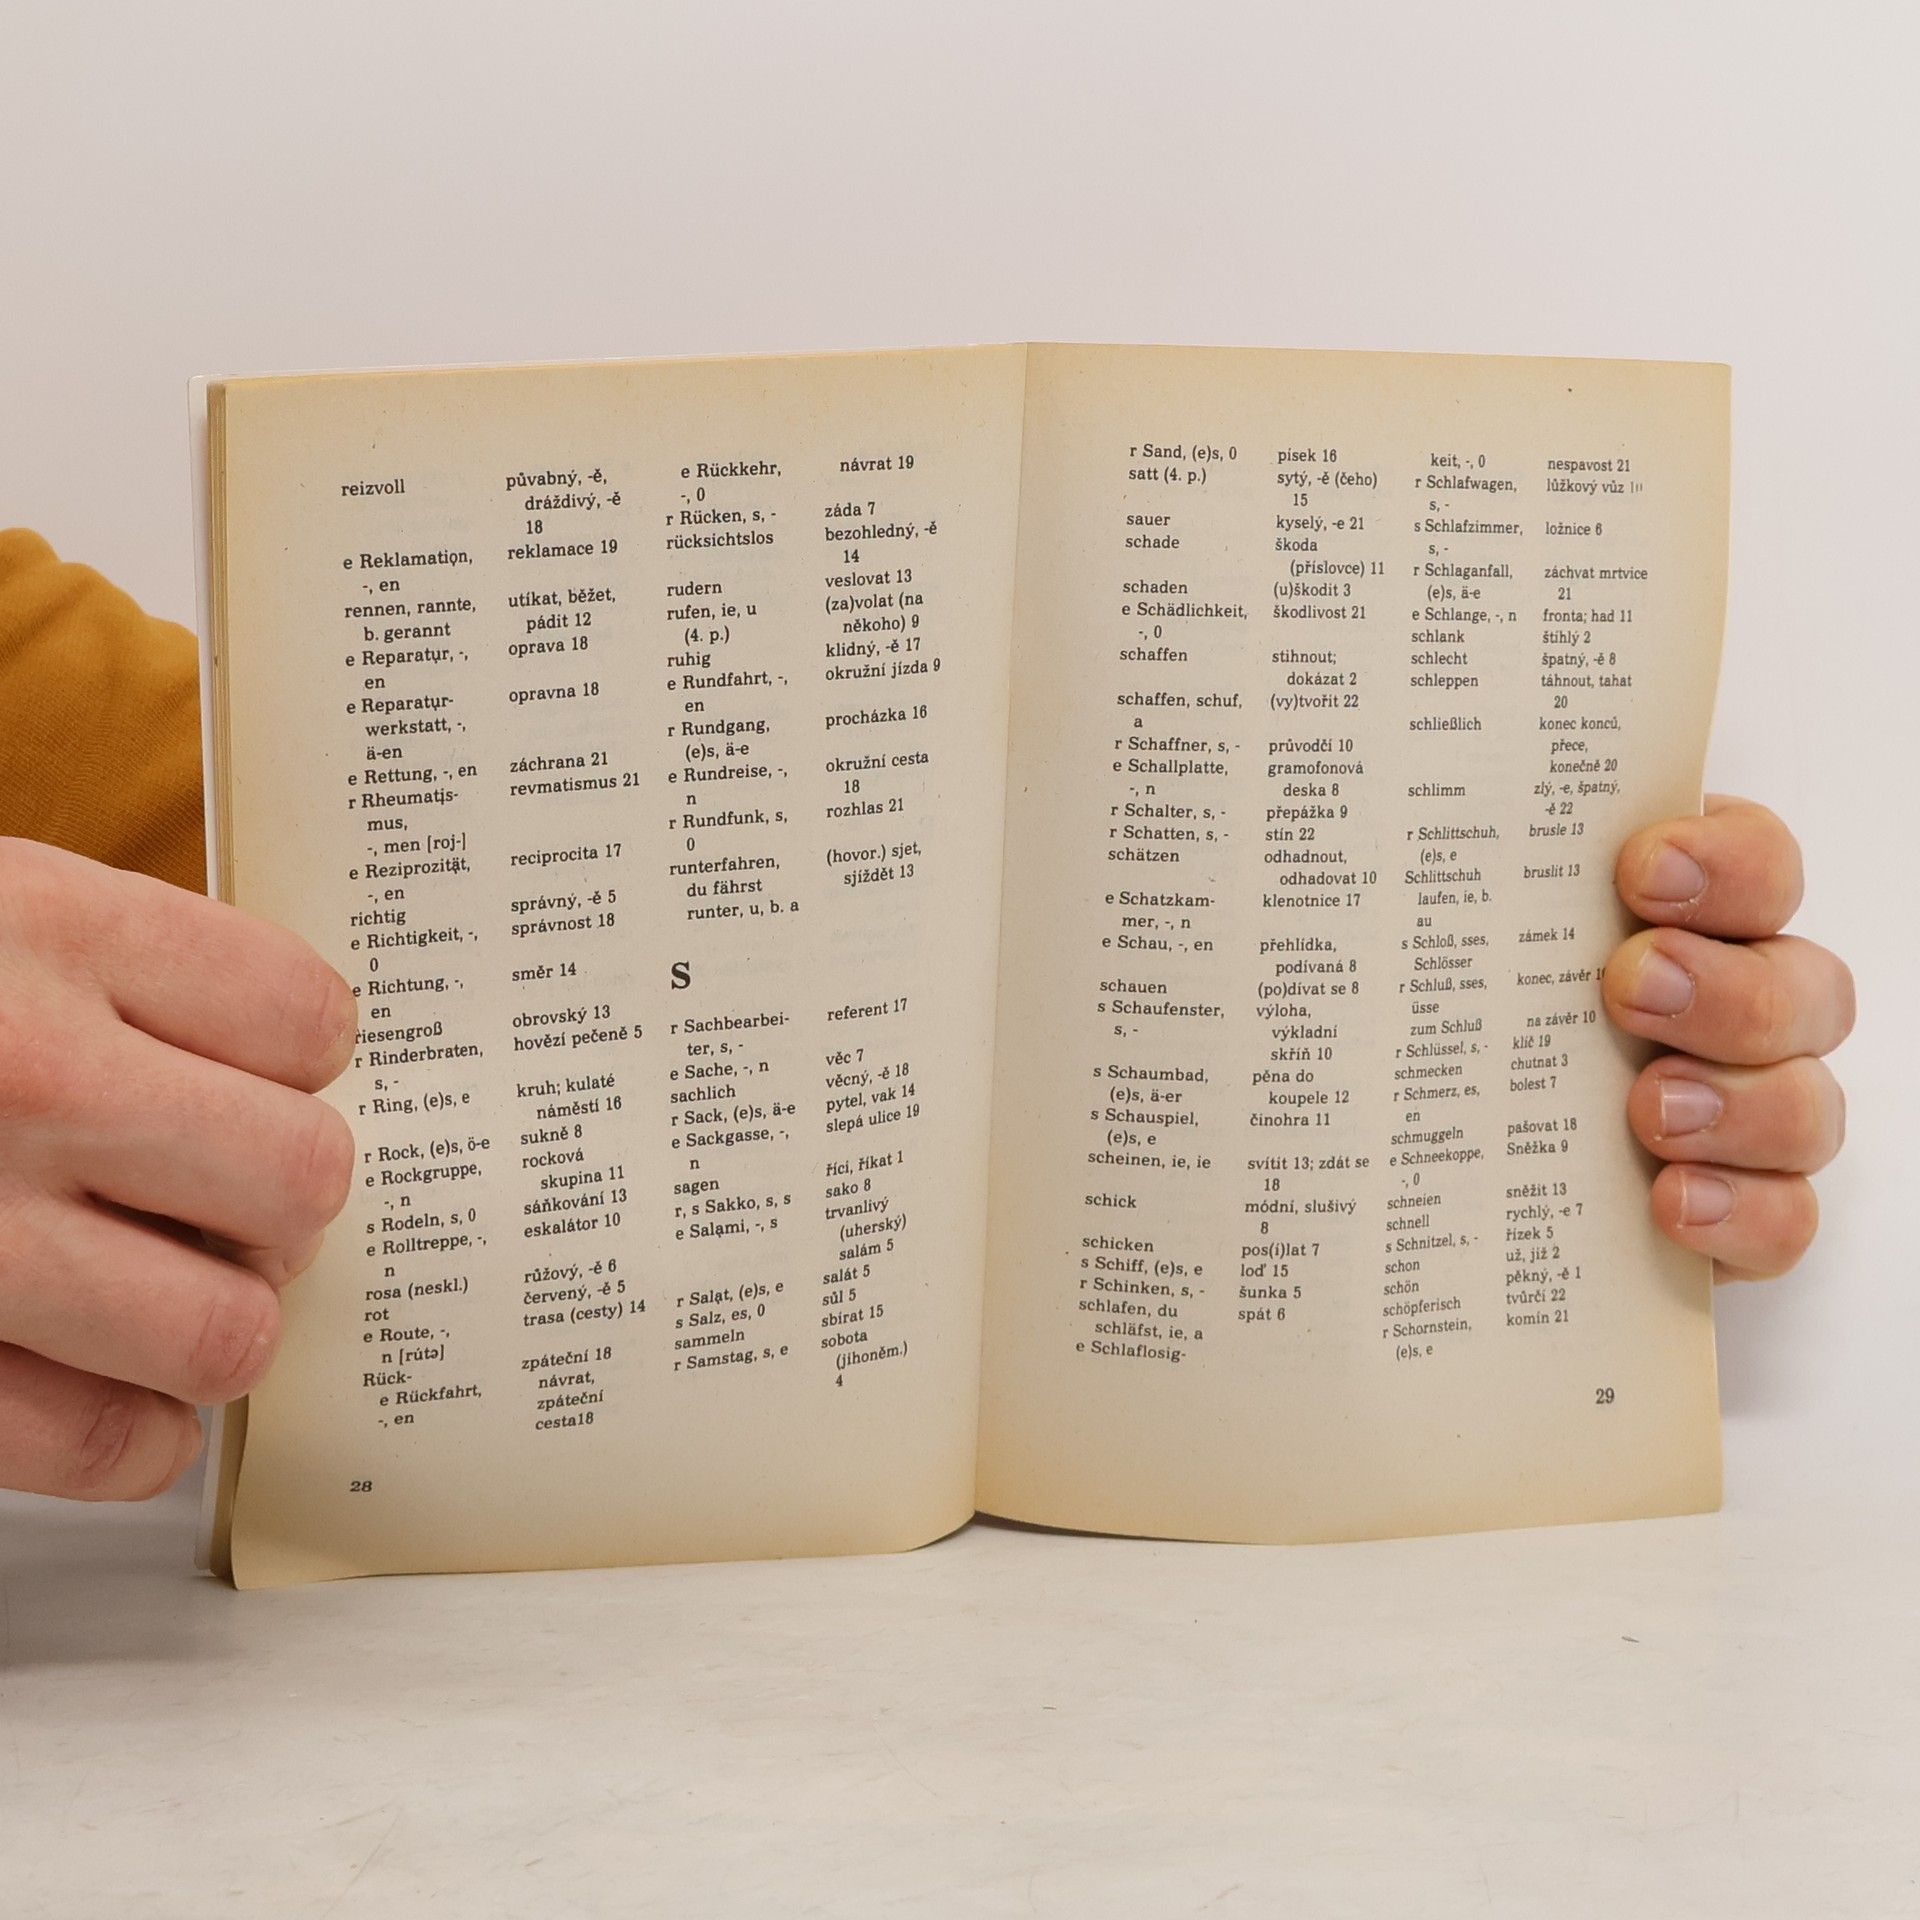 reizvoll
půvabný, -ě,
dráždivý, -ě
18
e Reklamation,
reklamace 19
-, en
rennen, rannte,
utíkat, běžet,
b. gerannt
pádit 12
e Reparatur, -,
oprava 18
en
e Reparatur-
opravna 18
werkstatt, -,
ä-en
e Rettung, -, en
záchrana 21
r Rheumatis-
revmatismus 21
mus,
-, men [roj-]
e Reziprozität,
reciprocita 17
-, en
richtig
správný, -ě 5
e Richtigkeit, -,
správnost 18
0
e Richtung, -,
směr 14
en
riesengroß
obrovský 13
r Rinderbraten,
hovězí pečeně 5
s, -
r Ring, (e)s, e
kruh; kulaté
náměstí 16
r Rock, (e)s, ö-e
sukně 8
e Rockgruppe,
rocková
-, n
skupina 11
s Rodeln, s, 0
sáňkování 13
e Rolltreppe, -,
eskalátor 10
n
rosa (neskl.)
růžový, -ě 6
rot
červený, -ě 5
e Route, -,
trasa (cesty) 14
n [rútə]
Rück-
zpáteční 18
e Rückfahrt,
návrat,
-, en
zpáteční
cesta18
e Rückkehr,
návrat 19
-, 0
r Rücken, s, -
záda 7
rücksichtslos
bezohledný, -ě
14
rudern
veslovat 13
rufen, ie, u
(za)volat (na
(4. p.)
někoho) 9
ruhig
klidný, -ě 17
e Rundfahrt, -,
okružní jízda 9
en
r Rundgang,
procházka 16
(e)s, ä-e
e Rundreise, -,
okružní cesta
n
18
r Rundfunk, s,
rozhlas 21
0
runterfahren,
(hovor.) sjet,
du fährst
sjíždět 13
runter, u, b. a
S
r Sachbearbei-
referent 17
ter, s, -
e Sache, -, n
věc 7
sachlich
věcný, -ě 18
r Sack, (e)s, ä-e
pytel, vak 14
e Sackgasse, -,
slepá ulice 19
n
sagen
říci, říkat 1
r, s Sakko, s, s
sako 8
e Salami, -, s
trvanlivý
(uherský)
salám 5
r Salat, (e)s, e
salát 5
s Salz, es, 0
sůl 5
sammeln
sbírat 15
r Samstag, s, e
sobota
(jihoněm.)
4
28
r Sand, (e)s, 0
písek 16
satt (4. p.)
sytý, -ě (čeho)
15
sauer
kyselý, -e 21
schade
škoda
(příslovce) 11
schaden
(u)škodit 3
e Schädlichkeit,
škodlivost 21
-, 0
schaffen
stihnout;
dokázat 2
schaffen, schuf,
(vy)tvořit 22
a
r Schaffner, s, -
průvodčí 10
e Schallplatte,
gramofonová
-, n
deska 8
r Schalter, s, -
přepážka 9
r Schatten, s, -
stín 22
schätzen
odhadnout,
odhadovat 10
e Schatzkam-
klenotnice 17
mer, -, n
e Schau, -, en
přehlídka,
podívaná 8
schauen
(po)dívat se 8
s Schaufenster,
výloha,
s, -
výkladní
skříň 10
s Schaumbad,
pěna do
(e)s, ä-er
koupele 12
s Schauspiel,
činohra 11
(e)s, e
scheinen, ie, ie
svítit 13; zdát se
18
schick
módní, slušivý
8
schicken
pos(í)lat 7
s Schiff, (e)s, e
loď 15
r Schinken, s, -
šunka 5
schlafen, du
spát 6
schläfst, ie, a
e Schlaflosig-
keit, -, 0
nespavost 21
r Schlafwagen,
lůžkový vůz
s, -
s Schlafzimmer,
ložnice 6
s, -
r Schlaganfall,
záchvat mrtvice
(e)s, ä-e
21
e Schlange, -, n
fronta; had 11
schlank
štíhlý 2
schlecht
špatný, -ě 8
schleppen
táhnout, tahat
20
schließlich
konec konců,
přece,
konečně 20
schlimm
zlý, -e, špatný,
-ě 22
r Schlittschuh,
brusle 13
(e)s, e
Schlittschuh
bruslit 13
laufen, ie, b.
au
s Schloß, sses,
zámek 14
Schlösser
r Schluß, sses,
konec, závěr
üsse
zum Schluß
na závěr 10
r Schlüssel, s, -
klíč 19
schmecken
chutnat 3
r Schmerz, es,
bolest 7
en
schmuggeln
pašovat 18
e Schneekoppe,
Sněžka 9
-, 0
schneien
sněžit 13
schnell
rychlý, -e 7
s Schnitzel, s, -
řízek 5
schon
už, již 2
schön
pěkný, -ě 1
schöpferisch
tvůrčí 22
r Schornstein,
komín 21
(e)s, e
29